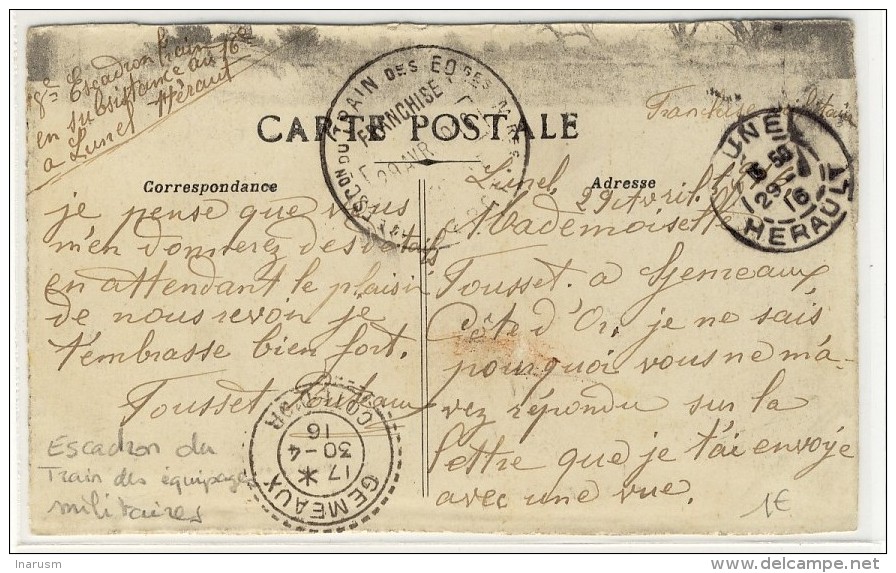 8e Escadron train
en subsistance au 16e
a Lunel Hérault
Franchise militaire
ESCON DU TRAIN DES EQ
FRANCHISE
29 AVR
CARTE POSTALE
LUNEL
15-50
29-4
16
HERAULT
Correspondance
Adresse
je pense que vous
m'en donnerez des détails
en attendant le plaisir
de nous revoir je
t'embrasse bien fort.
Tousset
Lunel,
29 Avril
Mademoiselle
Tousset. a Gemeaux
Côte d'Or, je ne sais
pourquoi vous ne m'a-
vez répondu sur la
lettre que je t'ai envoyé
avec une vue.
COTE D'OR
17 *
30-4
16
GEMEAUX
Escadron du
Train des équipages
militaires
1€
Inarusm
delcampe.net